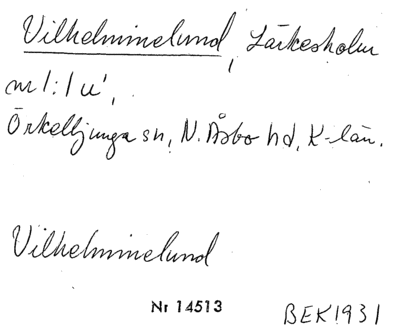 Vilhelminelund, Lärkesholm
m/:/u',
Örkelljunga sn, N. Åsbo hd, K-län.
Vilhelminelund
Nr 14513
BEK 1931